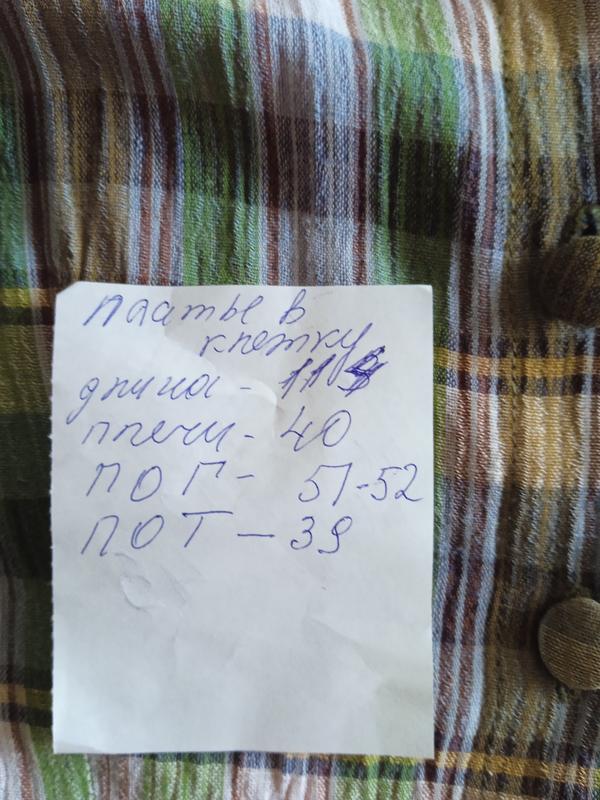 платье в
клетку
длина - 114
плечи - 40
ПОГ - 51-52
ПОТ - 39